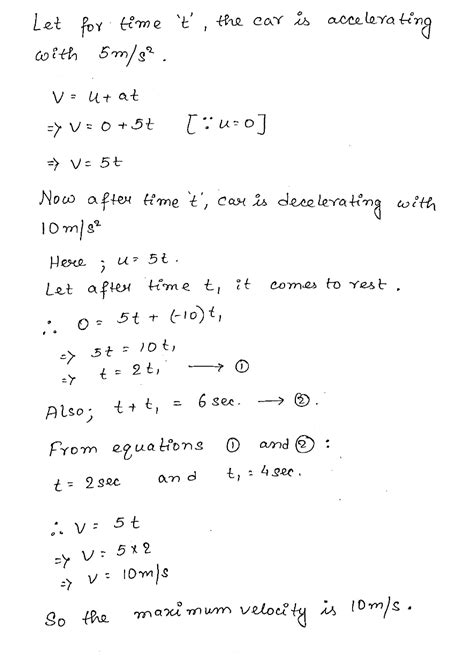 Let for time 't', the car is accelerating
with 5m/s².
V = u + at
=> V = 0 + 5t [∵ u = 0]
=> V = 5t
Now after time 't', car is decelerating with
10m/s²
Here ; u = 5t.
Let after time t₁ it comes to rest.
∴ 0 = 5t + (-10)t₁
=> 5t = 10t₁
=> t = 2t₁ ⟶ ①
Also; t + t₁ = 6 sec. ⟶ ②.
From equations ① and ② :
t = 2sec and t₁ = 4sec.
∴ V = 5t
=> V = 5×2
=> V = 10m/s
So the maximum velocity is 10m/s.